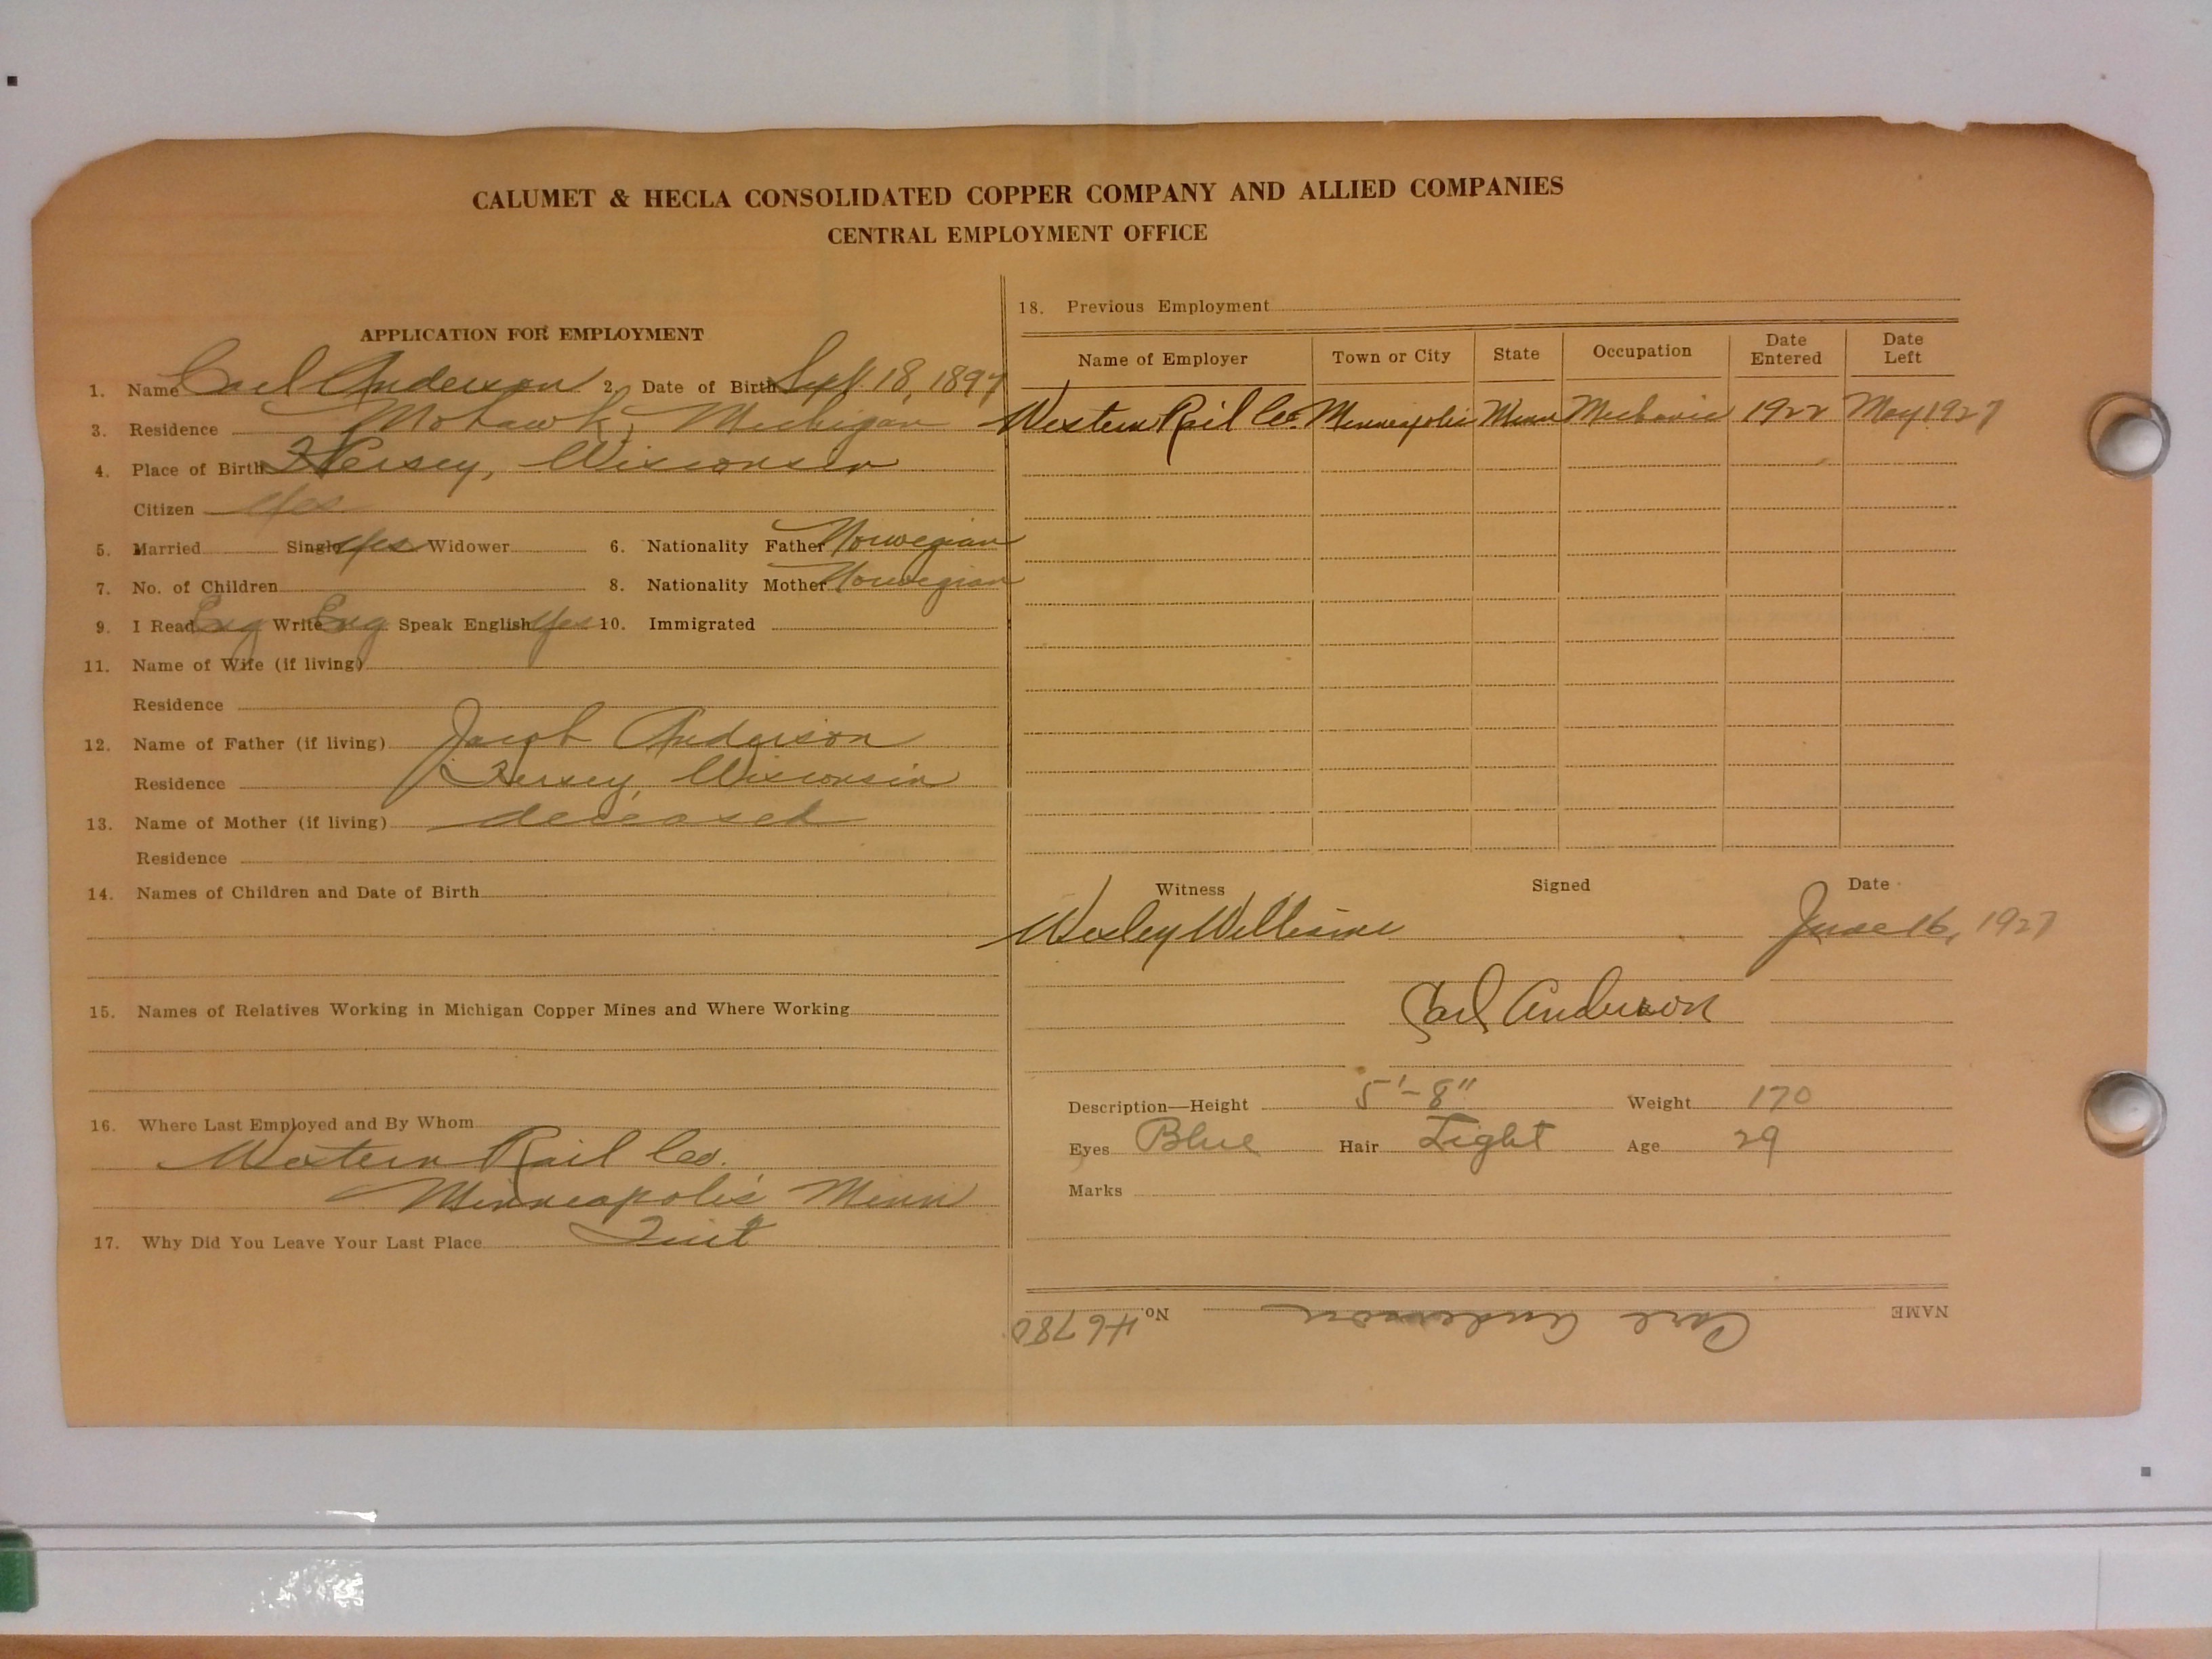 CALUMET & HECLA CONSOLIDATED COPPER COMPANY AND ALLIED COMPANIES
CENTRAL EMPLOYMENT OFFICE
APPLICATION FOR EMPLOYMENT
1. Name Carl Anderson 2. Date of Birth Sept 18, 1897
3. Residence Mohawk, Michigan
4. Place of Birth Hersey, Wisconsin
Citizen Yes
5. Married Single Yes Widower 6. Nationality Father Norwegian
7. No. of Children 8. Nationality Mother Norwegian
9. I Read Eng Write Eng Speak English Yes 10. Immigrated
11. Name of Wife (if living)
Residence
12. Name of Father (if living) Jacob Anderson
Residence Hersey, Wisconsin
13. Name of Mother (if living) deceased
Residence
14. Names of Children and Date of Birth
15. Names of Relatives Working in Michigan Copper Mines and Where Working
16. Where Last Employed and By Whom
Western Rail Co.
Minneapolis Minn
17. Why Did You Leave Your Last Place Quit
18. Previous Employment
Name of Employer Town or City State Occupation Date Entered Date Left
Western Rail Co. Minneapolis Minn Mechanic 1922 May 1927
Witness Signed Date
Wesley Williams June 16, 1927
Carl Anderson
Description—Height 5'-8" Weight 170
Eyes Blue Hair Light Age 29
Marks
NAME Carl Anderson No. 46780